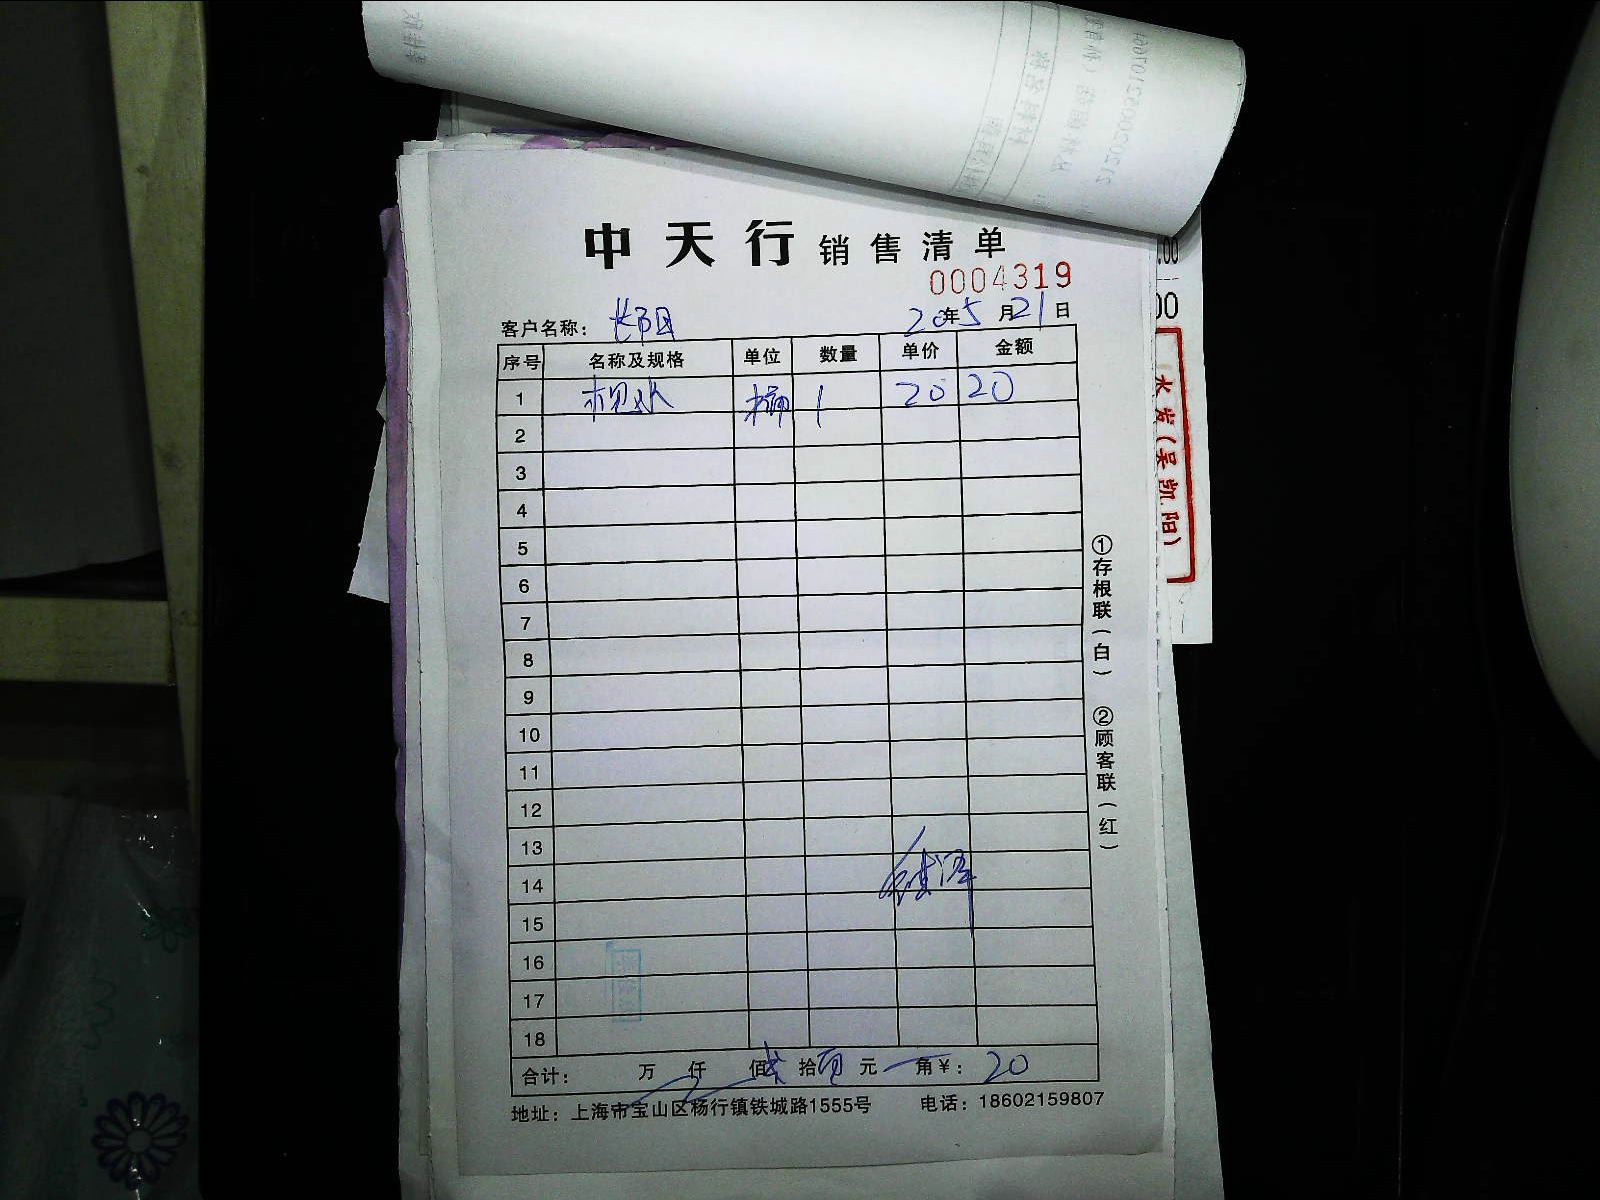 中天行 销售清单
0004319
客户名称： 长阳 20年5月21日
序号 名称及规格 单位 数量 单价 金额
1 桶 1 20 20
2
3
4
5
6
7
8
9
10
11
12
13
14
15
16
17
18
合计： 万 仟 佰 贰拾 零元 角￥： 20
地址：上海市宝山区杨行镇铁城路1555号 电话：18602159807
①存根联（白） ②顾客联（红）
.00
00
水发（吴凯阳）